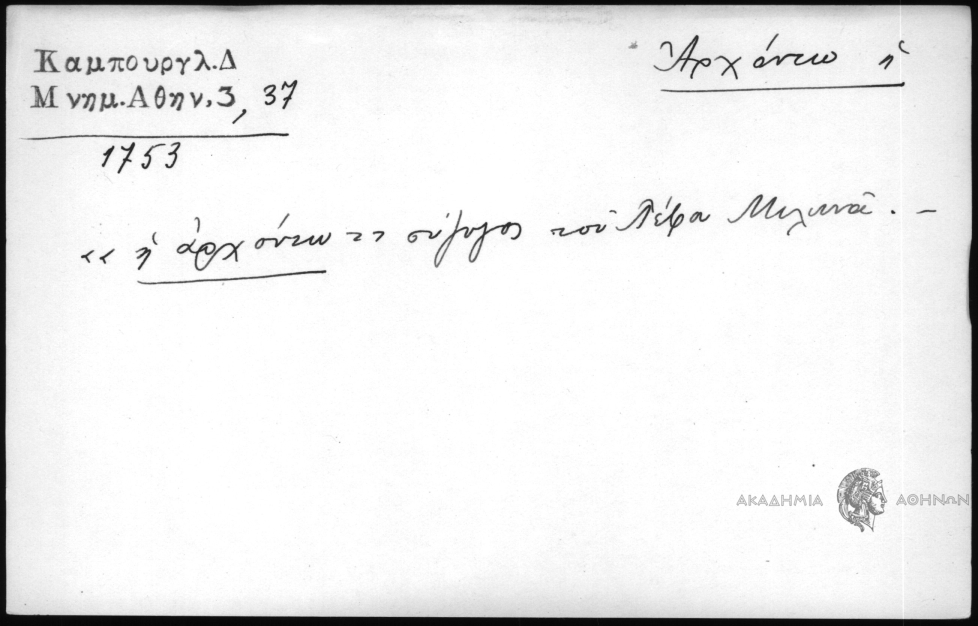 Καμπουργλ.Δ
Μνημ.Αθην.3, 37
1753
Ἀρχόντω ἡ
«ἡ ἀρχόντω » σύζυγος τοῦ . –
ΑΚΑΔΗΜΙΑ ΑΘΗΝΩΝ